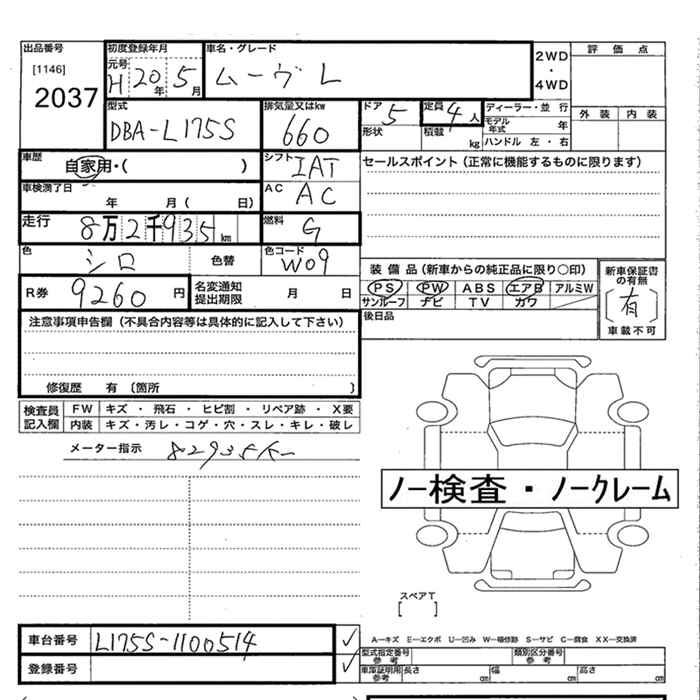 出品番号 初度登録年月 車名・グレード 2WD 評価点
[1146] 元号 H 20年 5月 ムーヴ L ・
2037 4WD
型式 排気量又はkw ドア 5 定員 4人 ディーラー・並行 外装 内装
DBA-L175S 660 形状 積載 kg モデル年式 年
ハンドル 左・右
車歴 自家用・( ) シフト IAT セールスポイント(正常に機能するものに限ります)
車検満了日 年 月( 日) AC AC
走行 8万2千935km 燃料 G
色 シロ 色替 色コード W09 装備品(新車からの純正品に限り○印) 新車保証書の有無
R券 9260円 名変通知提出期限 月 日 PS PW ABS エアB アルミW [有]
サンルーフ ナビ TV カワ 車載不可
注意事項申告欄(不具合内容等は具体的に記入して下さい) 後日品
修復歴 有 〔箇所 〕
検査員記入欄 FW キズ・飛石・ヒビ割・リペア跡・X要
内装 キズ・汚レ・コゲ・穴・スレ・キレ・破レ
メーター指示 82935K
ノー検査・ノークレーム
スペアT
[ ]
車台番号 L175S-1100514 ✓ A—キズ E—エクボ U—凹み W—補修跡 S—サビ C—腐食 XX—交換済
型式指定番号 参考 類別区分番号 参考
登録番号 ✓ 車庫証明用参考 長さ cm 幅 cm 高さ cm